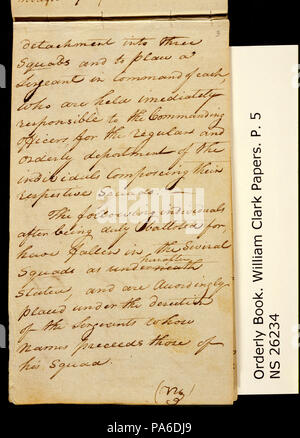 3
detachment into three
Squads and to place a
Sergeant in Command of each
who are held imediately
responsible to the Commanding
officers for the regular and
orderly deportment of the
individuls Comporeing their
respective Squads —
The following individuals
after being duly balloted for,
have fallen in the Several
hereafter
Squads as underneath
stated, and are Accordingly
placed under the derection
of the Sergeants whose
names preceeds those of
his Squad.
Orderly Book. William Clark Papers. P. 5
NS 26234
alamy
Image ID: PA6DJ9
www.alamy.com